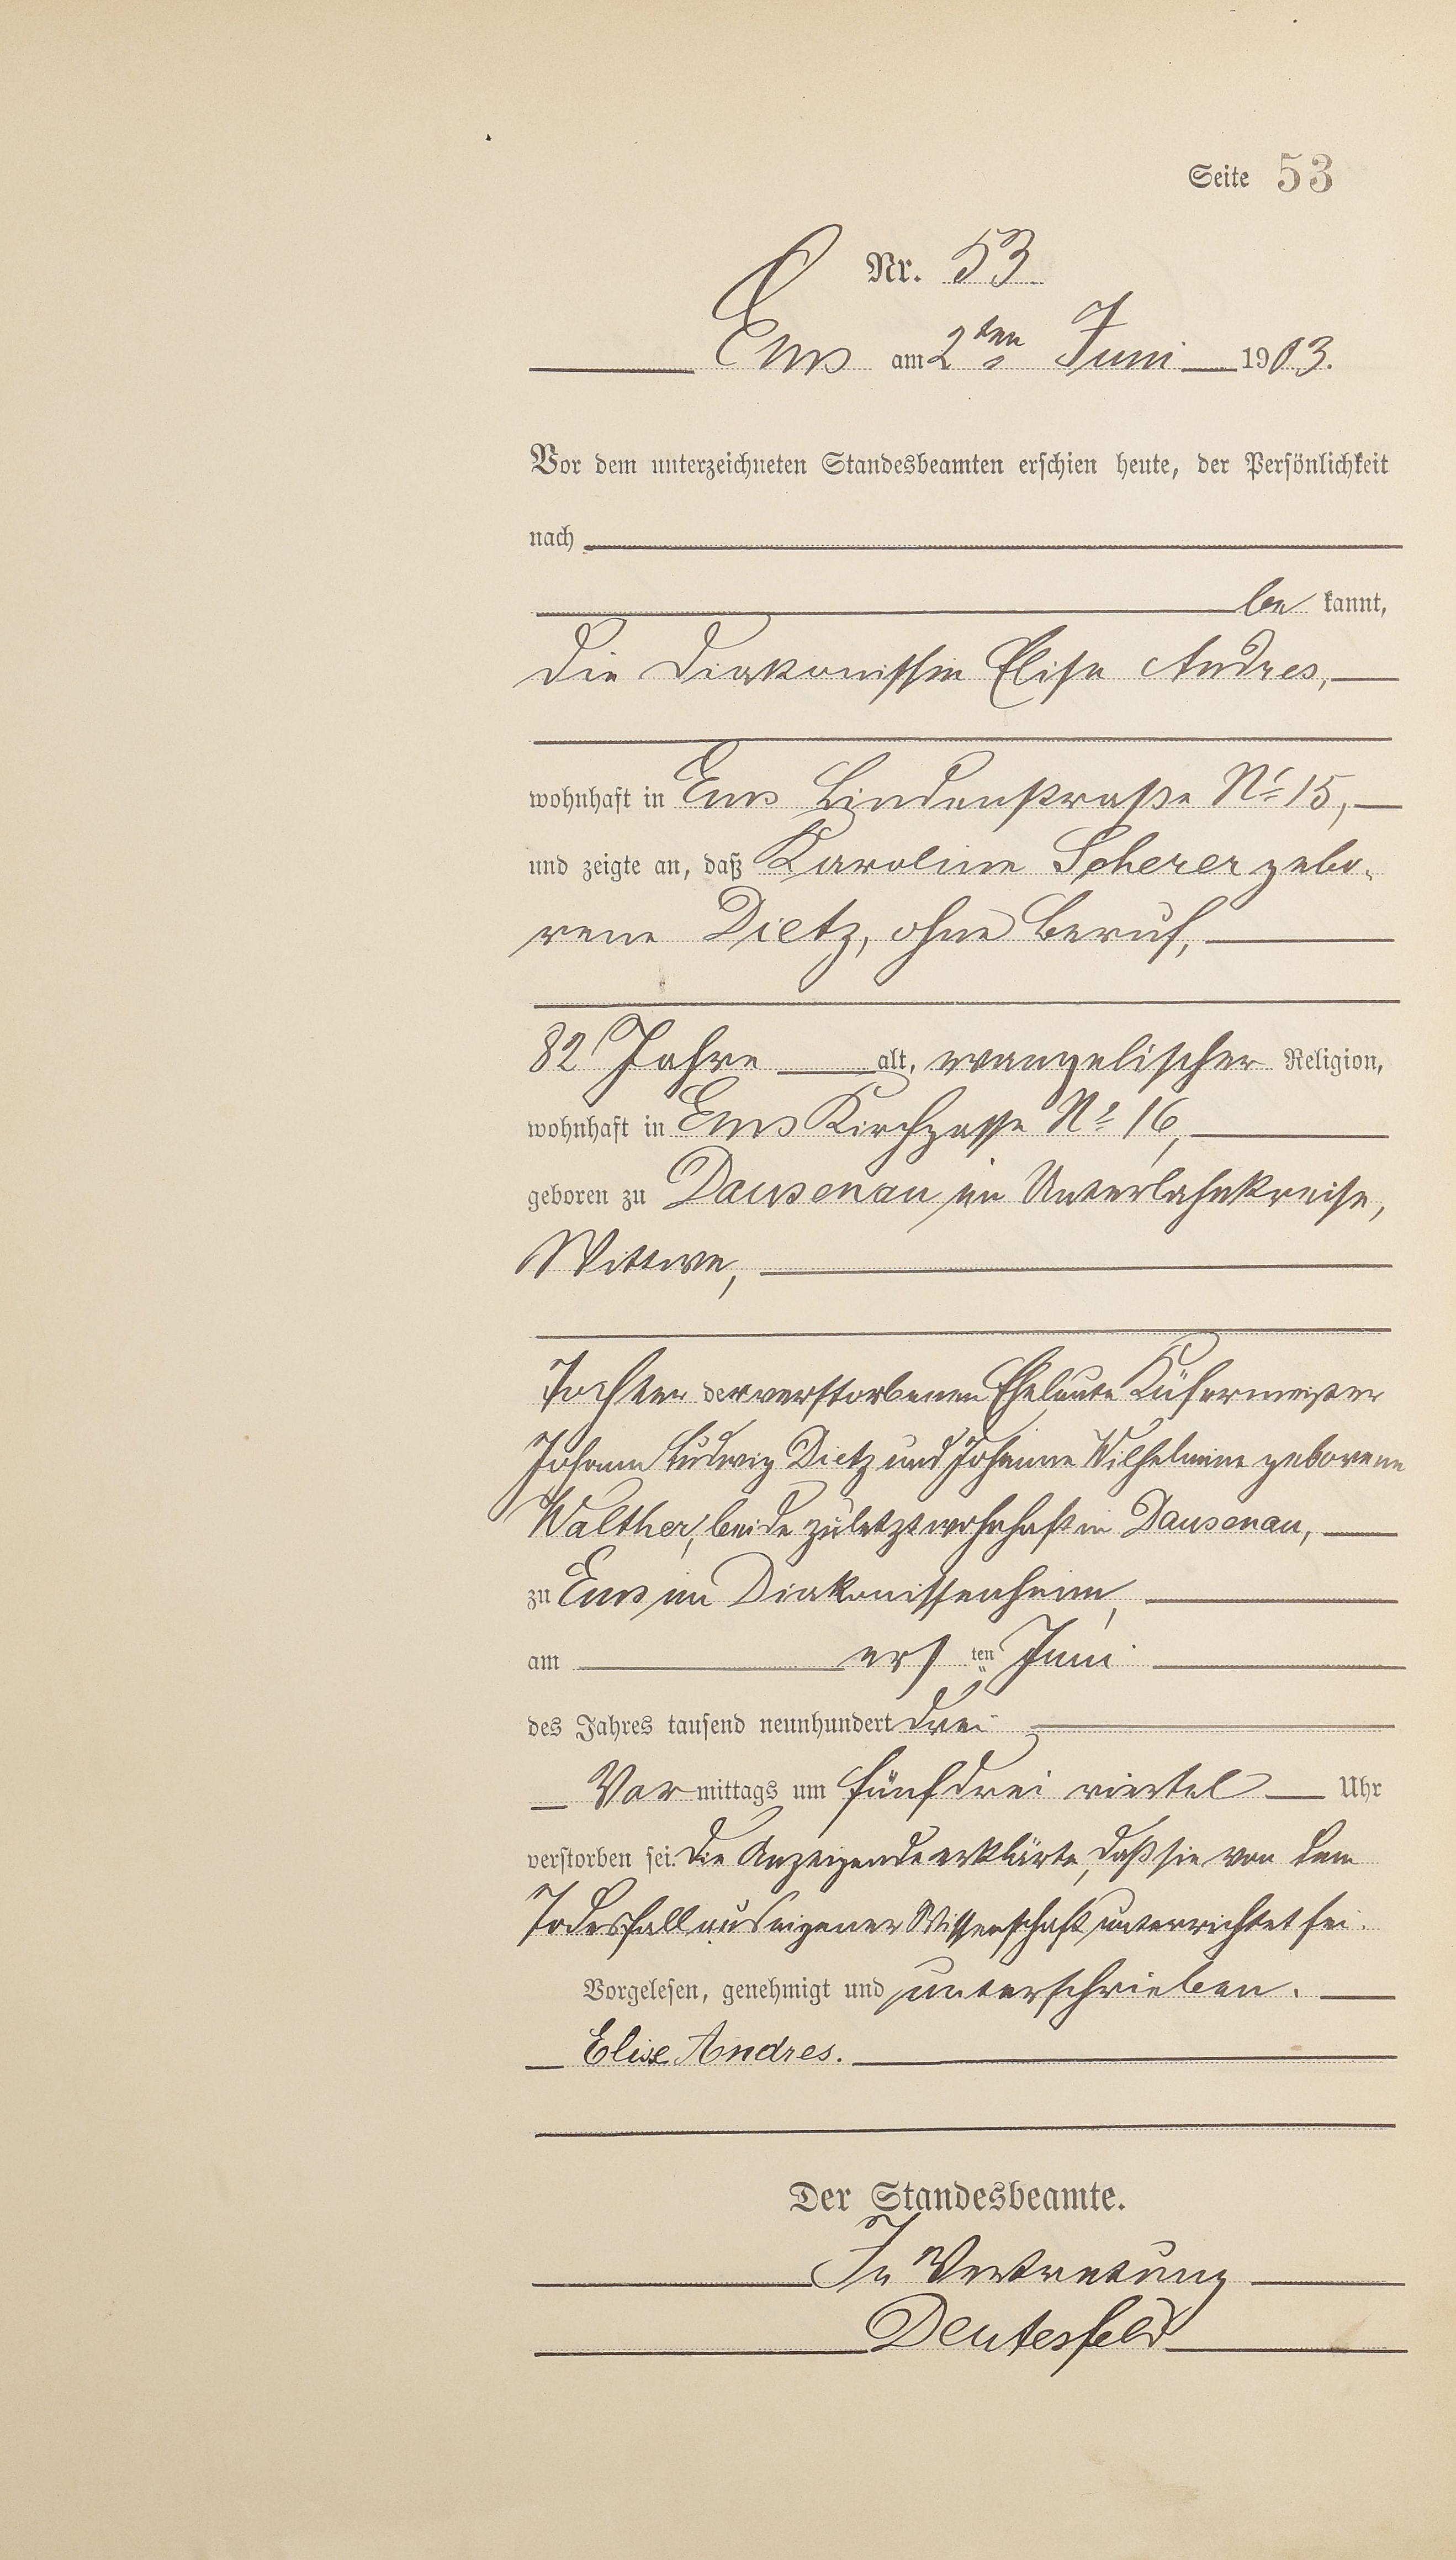 Seite 53
Nr. 53
Ems am 2ten Juni 1903.
Vor dem unterzeichneten Standesbeamten erschien heute, der Persönlichkeit
nach
be kannt,
die Diakonissin Elise Andres,
wohnhaft in Ems Lindenstraße No 15,
und zeigte an, daß Karoline Scherer gebo-
rene Dietz, ohne Beruf,
82 Jahre alt, evangelischer Religion,
wohnhaft in Ems Kirchgasse No 16,
geboren zu Dausenau im Unterlahnkreise,
Wittwe,
Tochter der verstorbenen Eheleute Küfermeister
Johann Ludwig Dietz und Johanne Wilhelmine geborene
Walther, beide zuletzt wohnhaft in Dausenau,
zu Ems im Diakonissenheim,
am ersten Juni
des Jahres tausend neunhundert drei
Vormittags um fünf drei viertel Uhr
verstorben sei. Die Anzeigende erklärte, daß sie von dem
Todesfall aus eigener Wissenschaft unterrichtet sei.
Vorgelesen, genehmigt und unterschrieben.
Elise Andres.
Der Standesbeamte.
In Vertretung
Deutesfeld